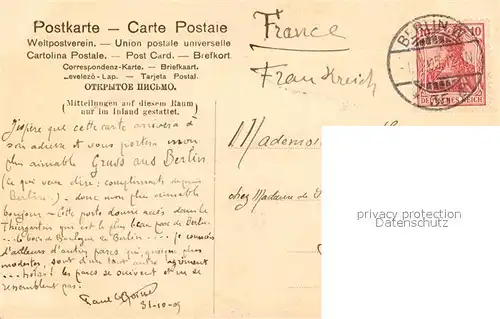 Postkarte – Carte Postale
Weltpostverein. – Union postale universelle
Cartolina Postale. – Post Card. – Briefkort
Correspondenz-Karte. – Briefkaart.
Levelező-Lap. – Tarjeta Postal.
ОТКРЫТОЕ ПИСЬМО.
(Mitteilungen auf diesem Raum
nur im Inland gestattet.)
France
Frankreich
BERLIN.W.
10
DEUTSCHES REICH
J'espère que cette carte arrivera à
son adresse et vous portera mon
plus aimable Gruss aus Berlin
(ce qui veut dire: compliments depuis
Berlin). - donc mon plus aimable
bonjour - Cette porte donne accès dans le
Thiergarten qui est le plus beau parc de Berlin
... le bois de Boulogne de Berlin.... je connais
d'ailleurs d'autres parcs qui, quoique plus
modestes sont d'un tout autre agrément
... hélas! les parcs se suivent et ne se
ressemblent pas.
Paul
31-10-05
Mademois
chez Madame de
privacy protection
Datenschutz